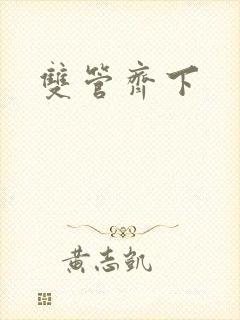 雙管齊下
黃志凱